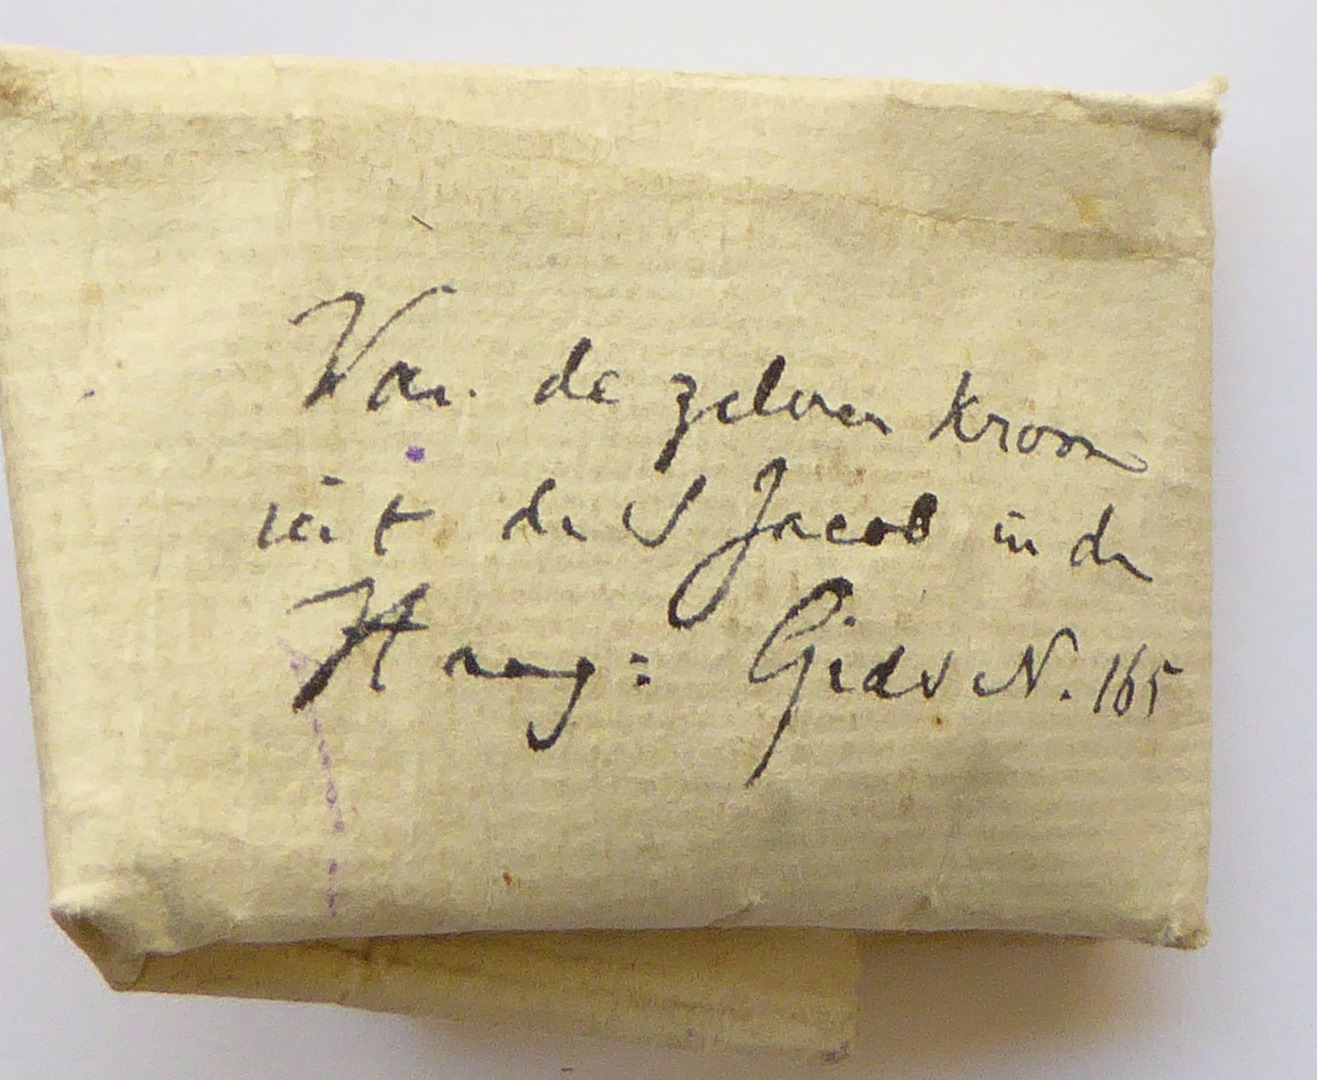 Van de zelven kroon
uit de S Jacob in den
Haag: Gids N. 165